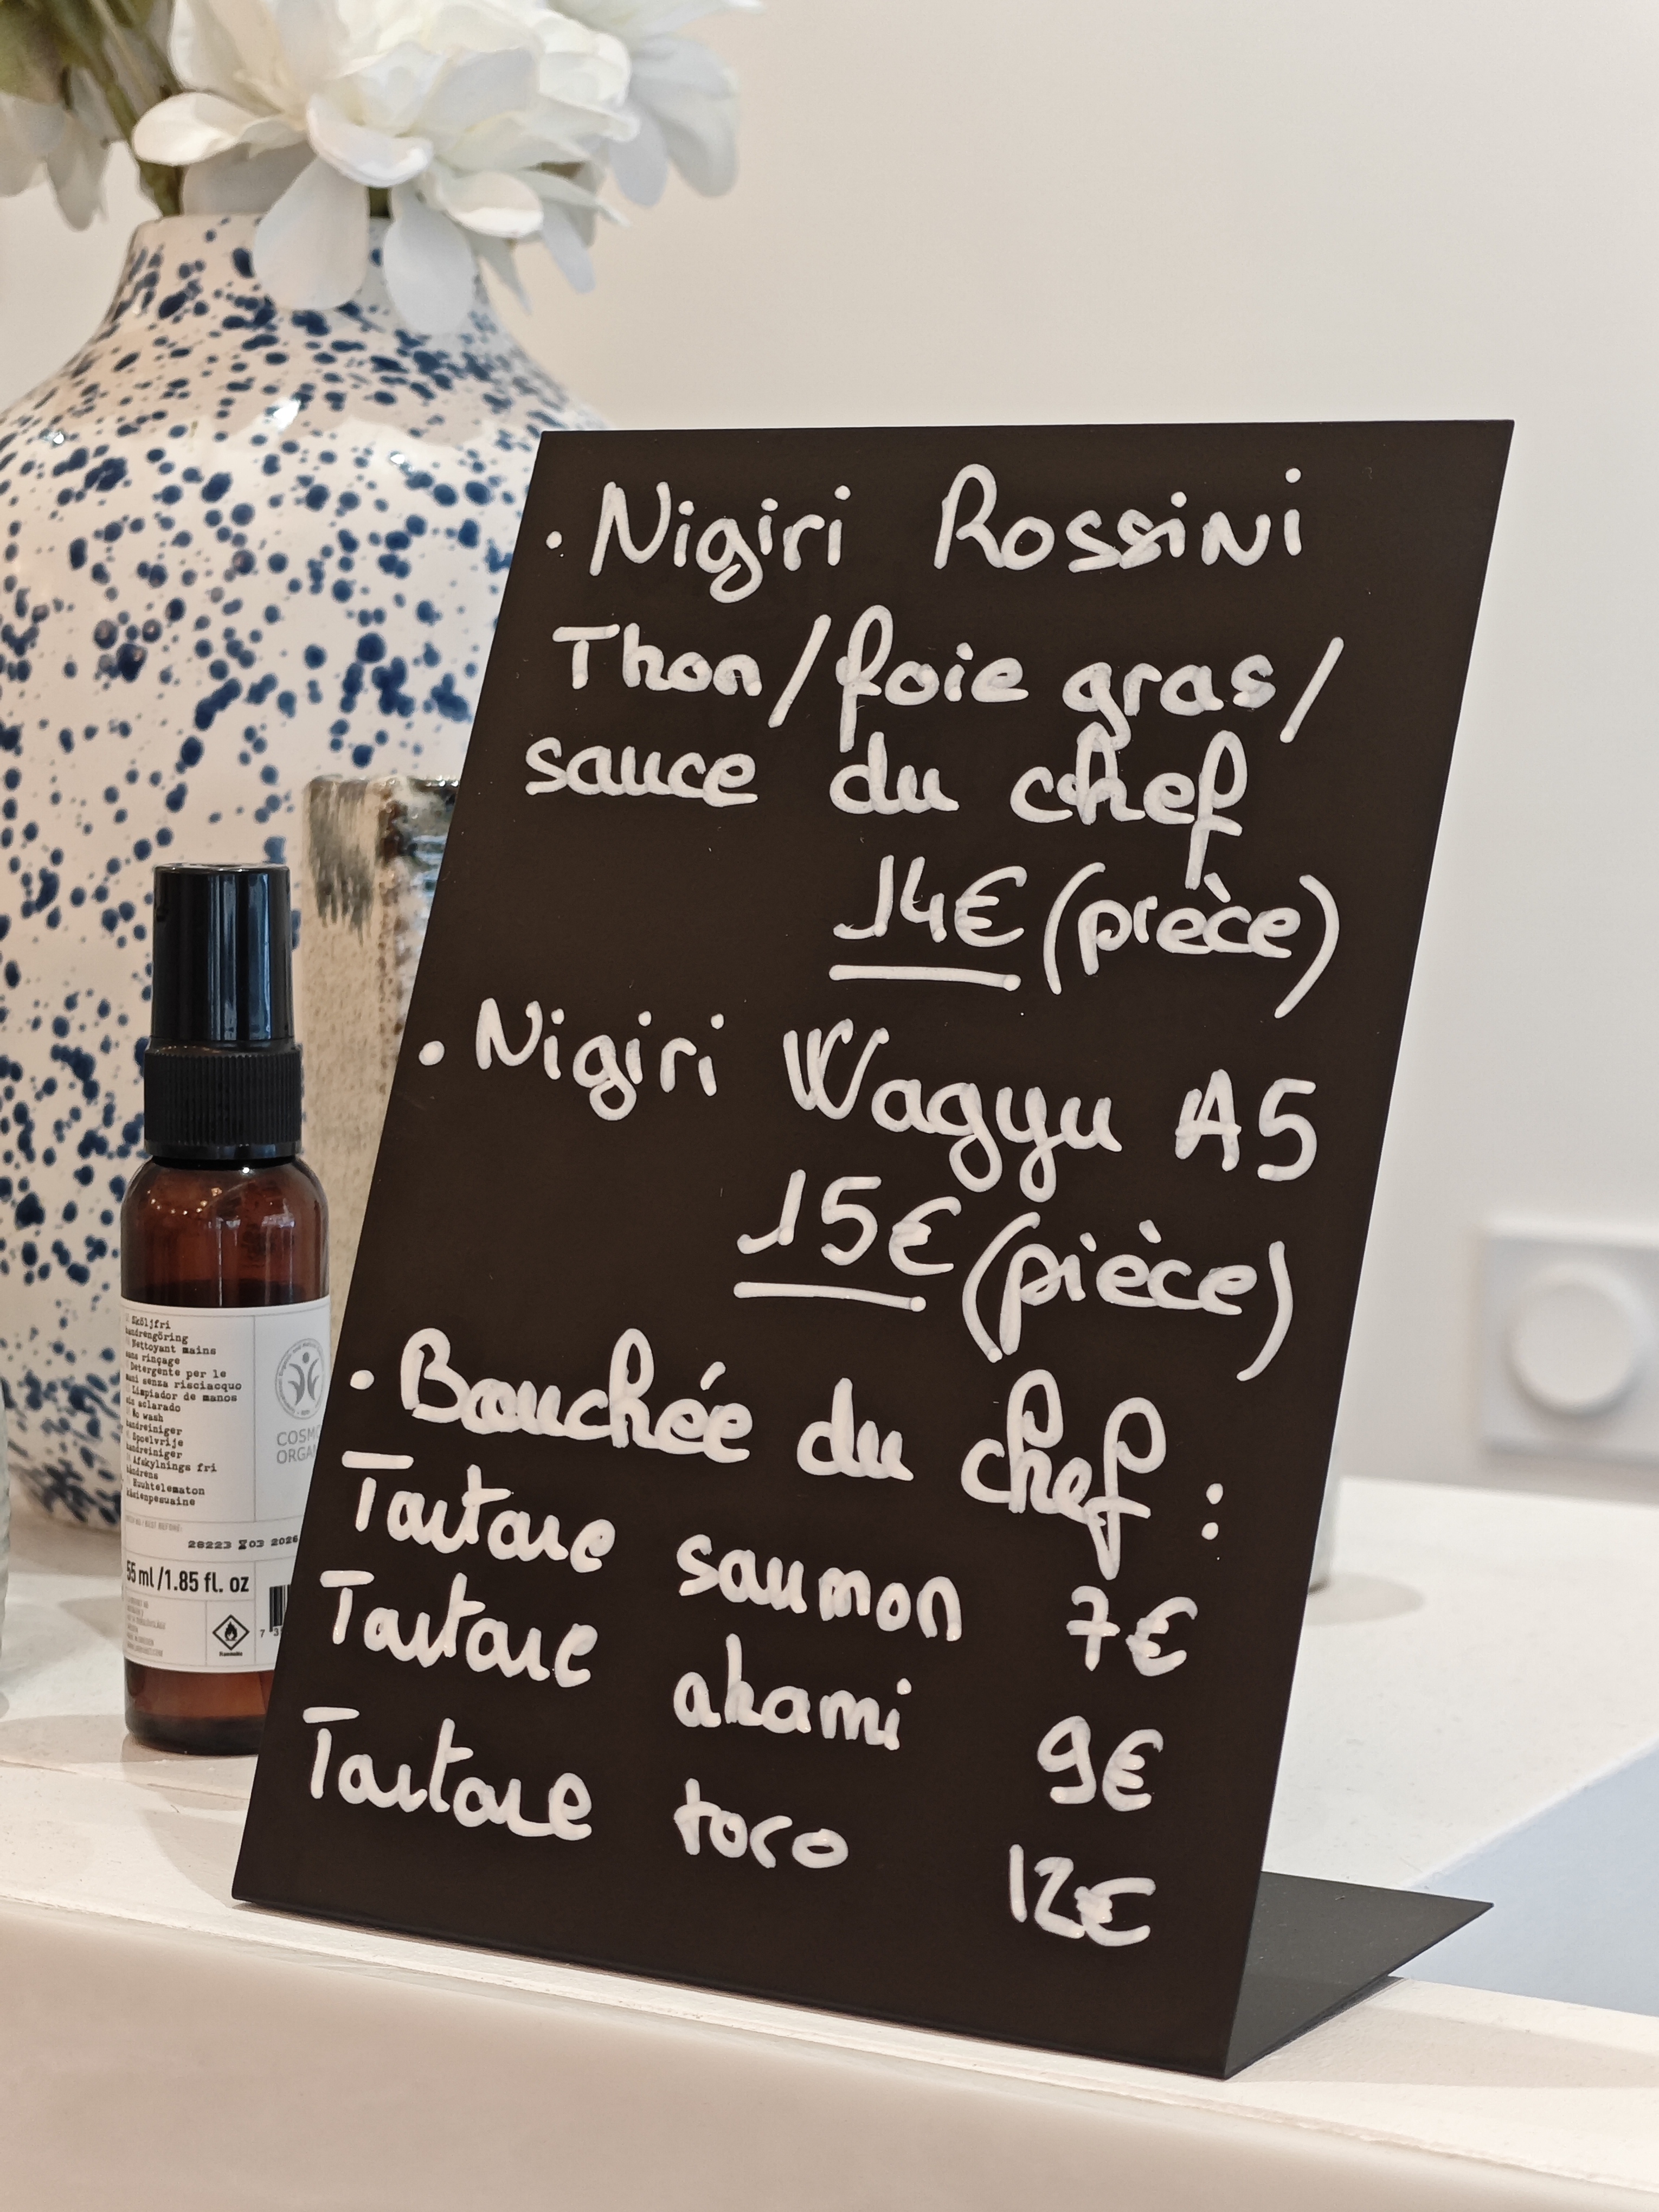 . Nigiri Rossini
Thon/foie gras/
sauce du chef
14€ (pièce)
. Nigiri Wagyu A5
15€ (pièce)
. Bouchée du chef :
Tartare saumon 7€
Tartare akami 9€
Tartare toro 12€
Sköljfri
handrengöring
Nettoyant mains
sans rinçage
Detergente per le
mani senza risciacquo
Limpiador de manos
sin aclarado
No wash
handreiniger
Spoelvrije
handreiniger
Afskylnings fri
håndrens
Huuhtelematon
käsienpesuaine
COSMO
ORGAN
28223 03 2026
55 ml/1.85 fl. oz